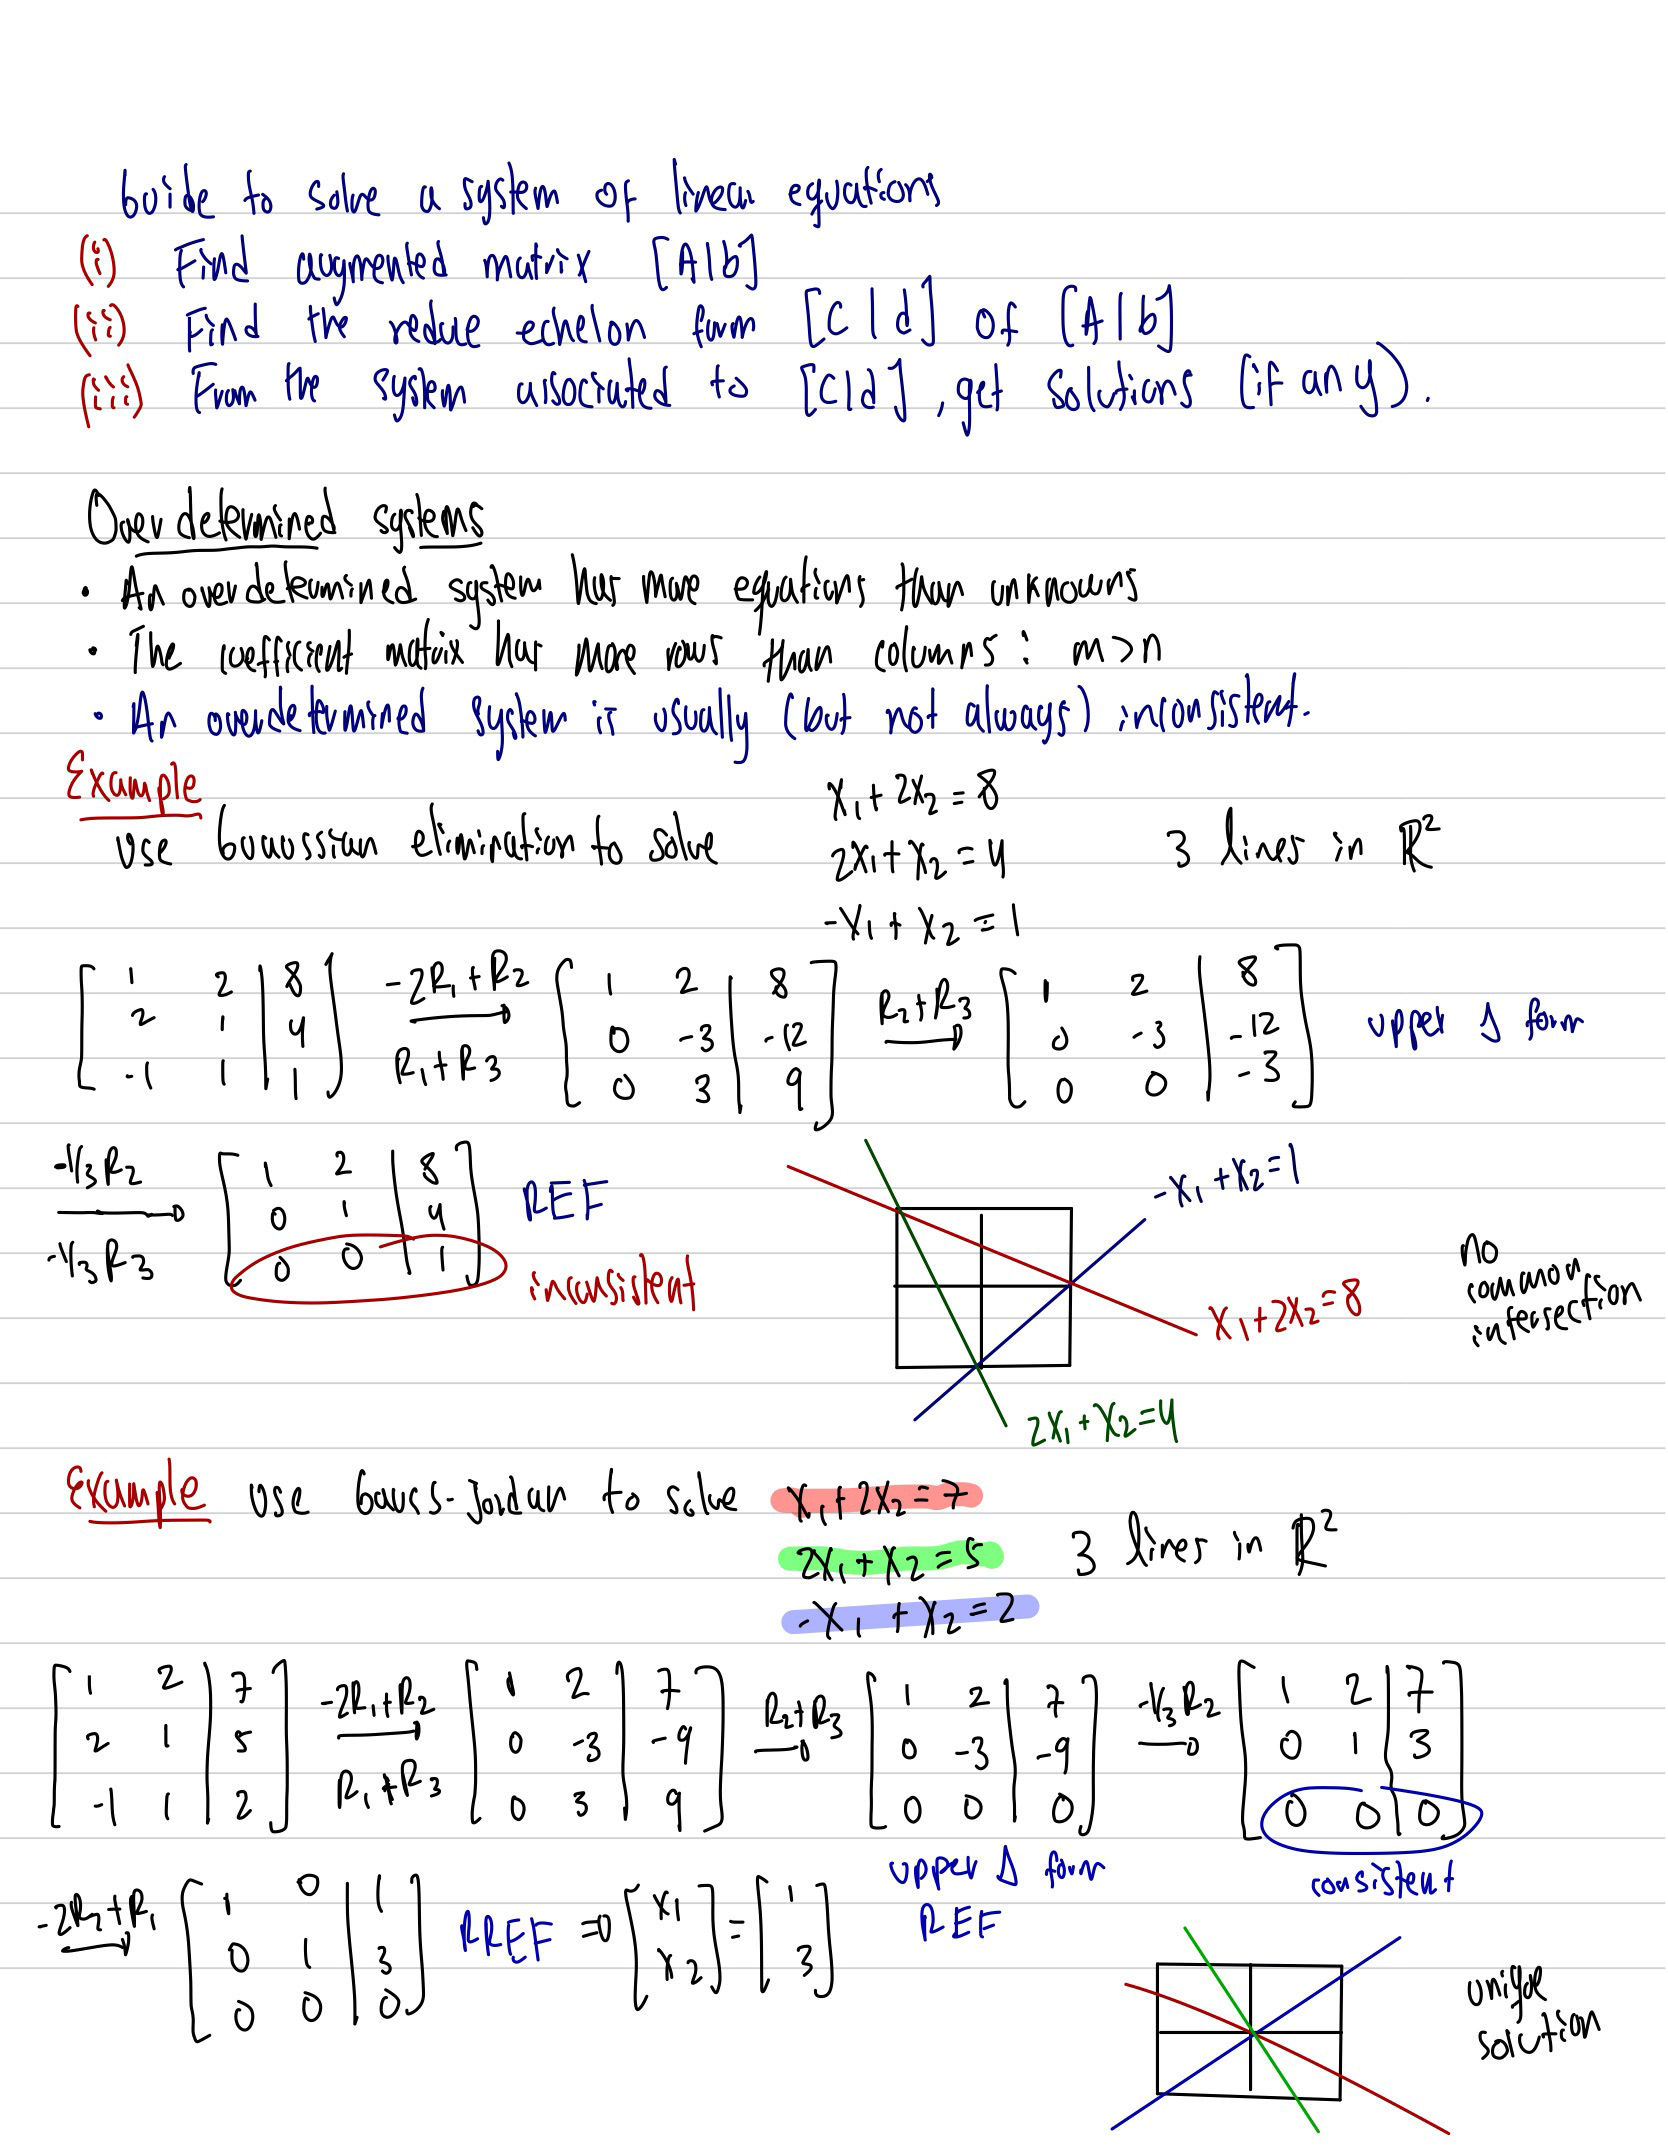 Guide to solve a system of linear equations
(i) Find augmented matrix [A|b]
(ii) Find the redue echelon form [C|d] of [A|b]
(iii) From the system associated to [C|d], get solutions (if any).
Overdetermined systems
• An overdetermined system has more equations than unknowns
• The coefficient matrix has more rows than columns: m>n
• An overdetermined system is usually (but not always) inconsistent.
Example
x₁ + 2x₂ = 8
Use Gauussian elimination to solve
2x₁ + x₂ = 4
3 lines in ℝ²
-x₁ + x₂ = 1
[1 2 | 8
2 1 | 4
-1 1 | 1]
-2R₁ + R₂
R₁ + R₃
[1 2 | 8
0 -3 | -12
0 3 | 9]
R₂+R₃
[1 2 | 8
0 -3 | -12
0 0 | -3]
upper Δ form
-1/3 R₂
-1/3 R₃
[1 2 | 8
0 1 | 4
0 0 | 1]
REF
inconsistent
-x₁ + x₂ = 1
x₁ + 2x₂ = 8
2x₁ + x₂ = 4
no
common
intersection
Example Use Gauss-Jordan to solve x₁ + 2x₂ = 7
2x₁ + x₂ = 5
3 lines in ℝ²
-x₁ + x₂ = 2
[1 2 | 7
2 1 | 5
-1 1 | 2]
-2R₁+R₂
R₁+R₃
[1 2 | 7
0 -3 | -9
0 3 | 9]
R₂+R₃
[1 2 | 7
0 -3 | -9
0 0 | 0]
-1/3 R₂
[1 2 | 7
0 1 | 3
0 0 | 0]
upper Δ form
REF
consistent
-2R₂+R₁
[1 0 | 1
0 1 | 3
0 0 | 0]
RREF ⇒ [x₁
x₂] = [1
3]
uniqe
solution